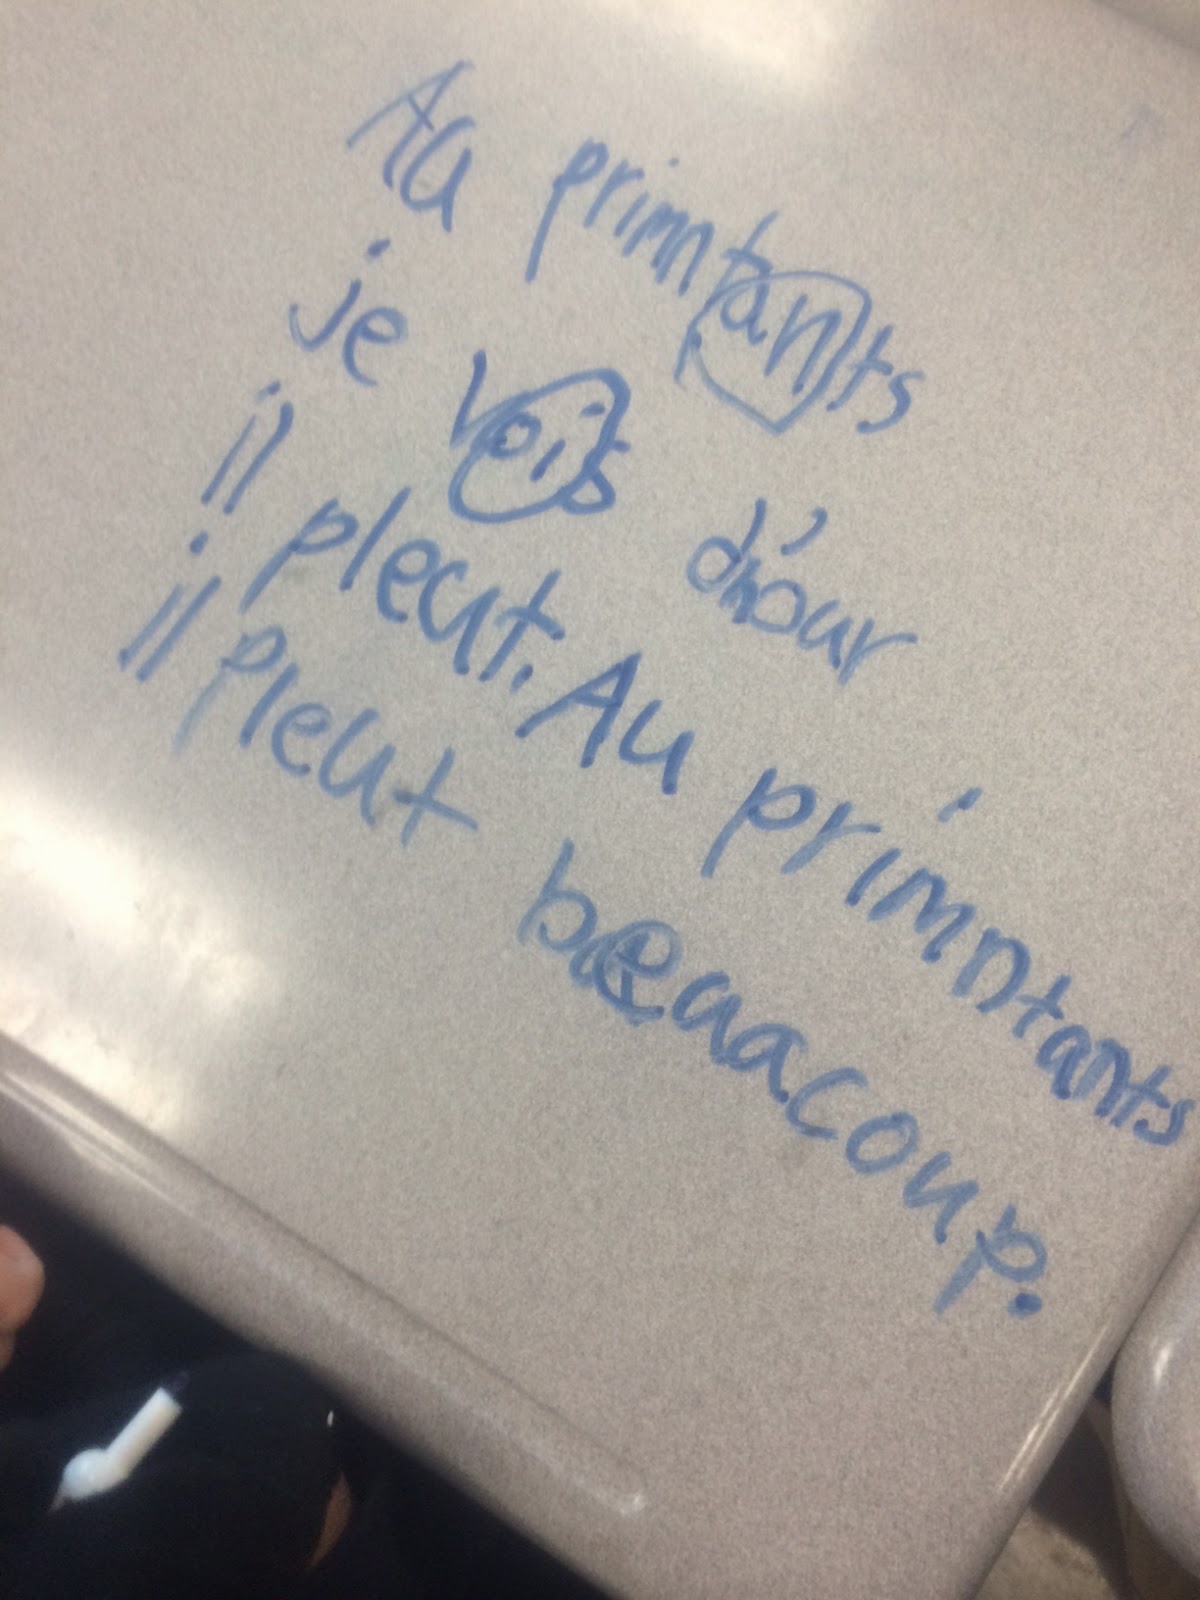 Au primntants
je vois dhóur
il pleut. Au primntants
il pleut beaacoup.